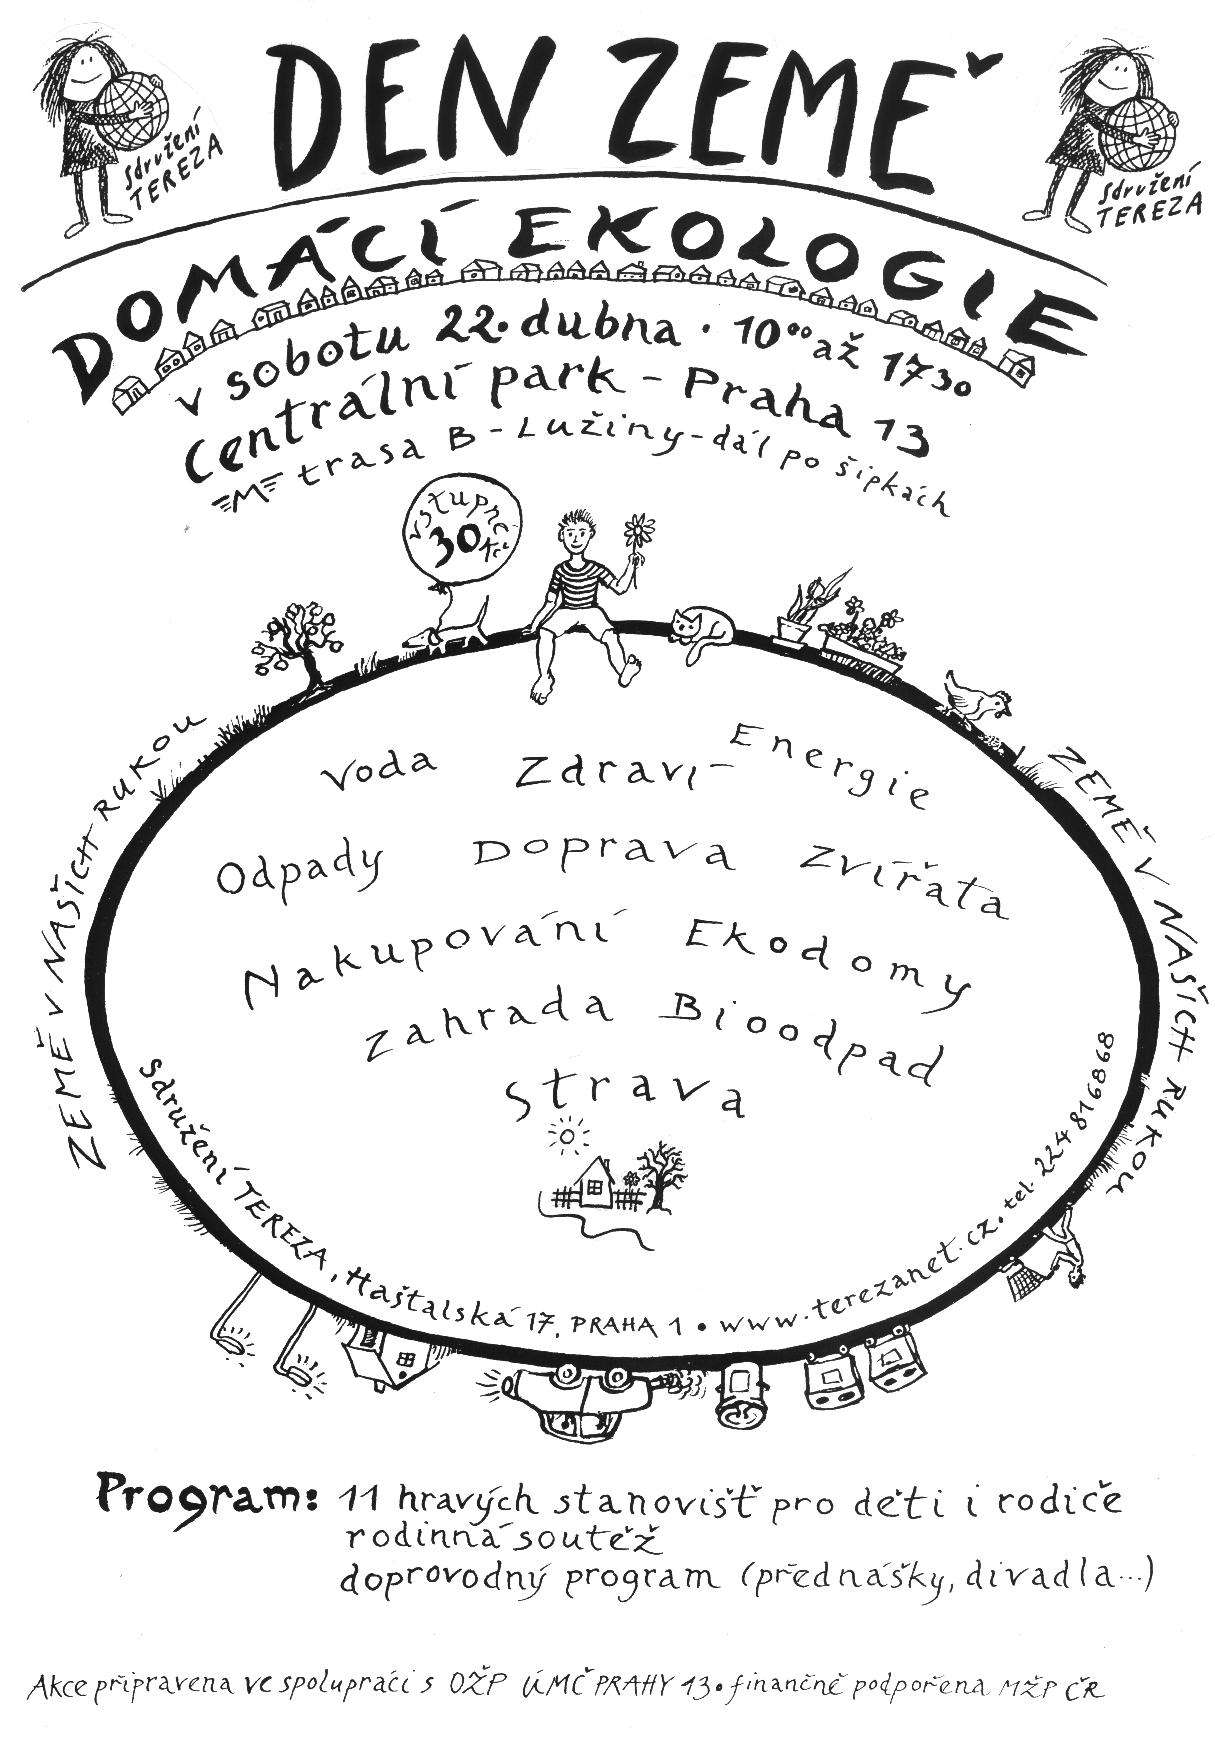 DEN ZEMĚ
Sdružení
TEREZA
Sdružení
TEREZA
DOMÁCÍ EKOLOGIE
v sobotu 22. dubna · 10⁰⁰ až 17³⁰
Centrální park - Praha 13
M trasa B - Lužiny - dál po šipkách
vstupné
30 Kč
ZEMĚ V NAŠICH RUKOU
ZEMĚ V NAŠICH RUKOU
Voda Zdraví Energie
Odpady Doprava Zvířata
Nakupování Ekodomy
Zahrada Bioodpad
Strava
Sdružení TEREZA, Haštalská 17, PRAHA 1 • www.terezanet.cz • tel. 224 816 868
Program: 11 hravých stanovišť pro děti i rodiče
rodinná soutěž
doprovodný program (přednášky, divadla...)
Akce připravena ve spolupráci s OŽP ÚMČ PRAHY 13 • finančně podpořena MŽP ČR